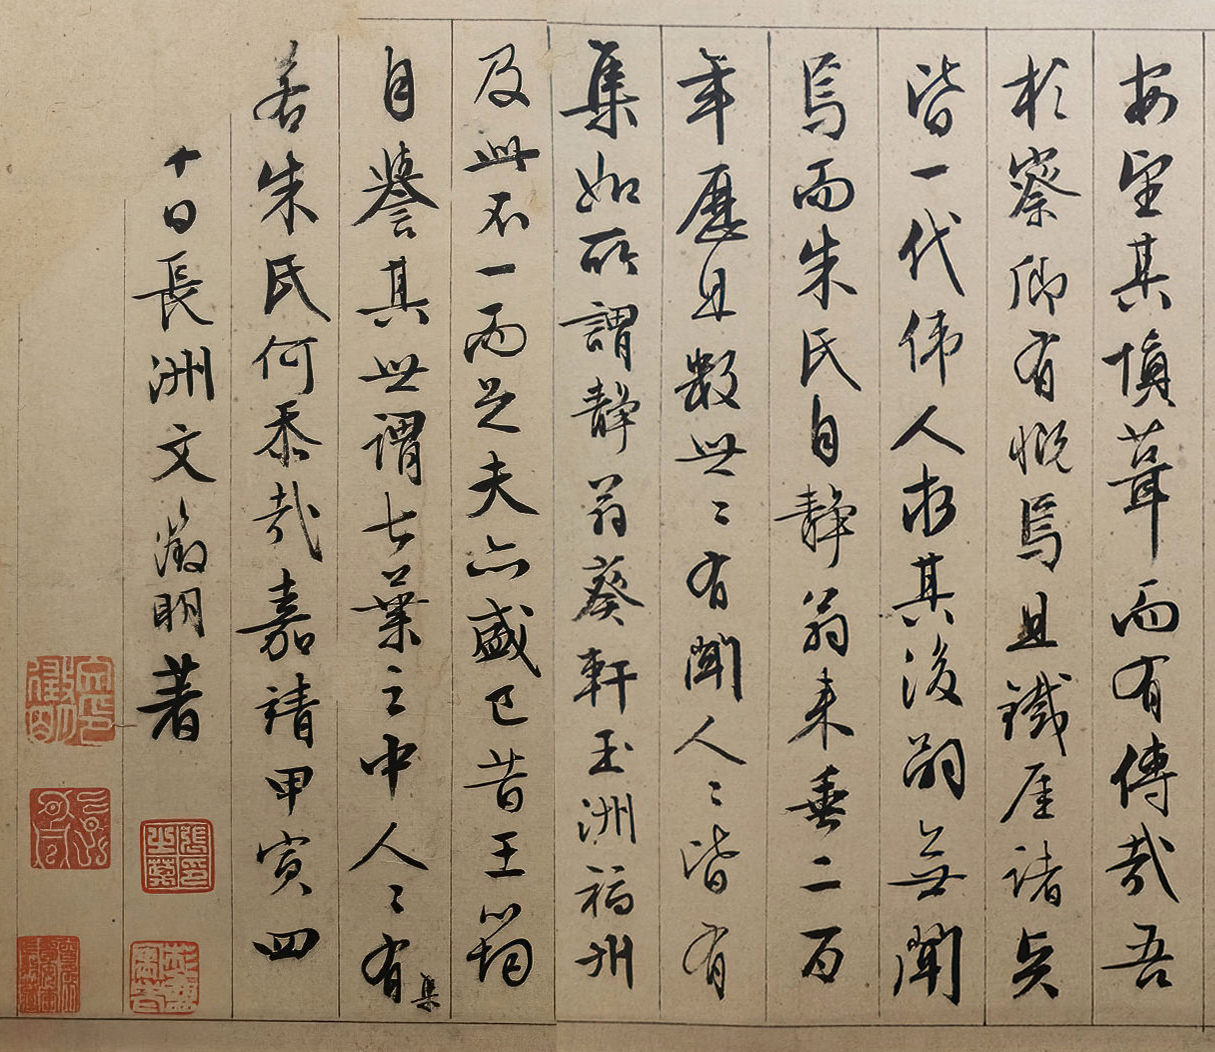 安望其慎葺而有傳哉吾
於察卿有慨焉且鐵厓諸
皆一代偉人求其後嗣無聞
焉而朱氏自靜翁來垂二百
年歷且數世〻有聞人〻皆有
集如所謂靜翁葵軒玉洲福州
及此不一而足夫亦盛已昔王筠
自譽其世謂七葉之中人〻有集
若朱氏何忝哉嘉靖甲寅四
十日長洲文徵明著